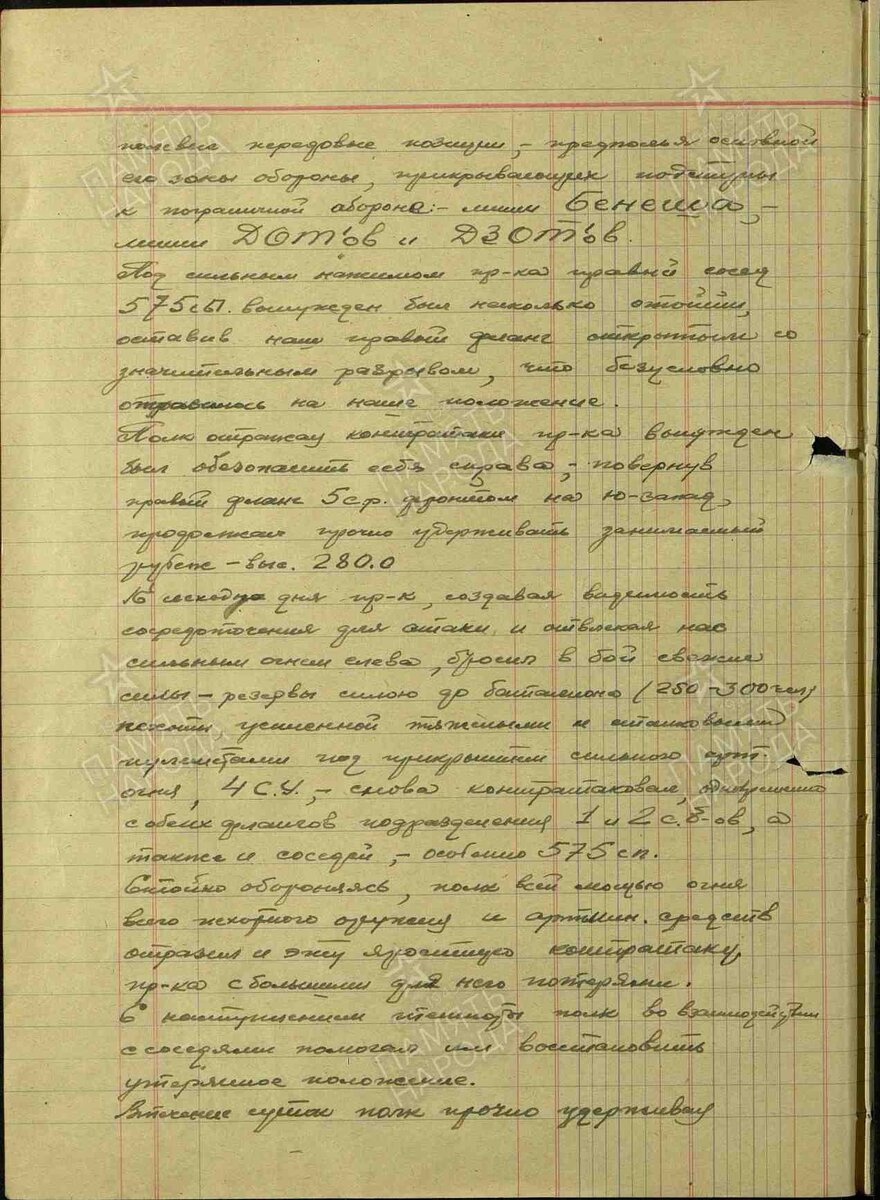 полевые передовые позиции, – предполья основной
его зоны обороны, прикрывающих подступы
к пограничной обороне: – линии Бенеша, –
линии ДОТ'ов и ДЗОТ'ов.
Под сильным нажимом пр-ка правый сосед
575 сп. вынужден был несколько отойти,
оставив наш правый фланг открытым со
значительным разрывом, что безусловно
отразилось на наше положение.
Полк отражая контратаки пр-ка вынужден
был обезопасить себя справа, – повернув
правый фланг 5 с.р. фронтом на ю-запад,
продолжая прочно удерживать занимаемый
рубеж – выс. 280.0
К исходу дня пр-к, создавая видимость
сосредоточения для атаки и отвлекая нас
сильным огнем слева, бросил в бой свежие
силы – резервы силою до баталиона (250–300 чел)
пехоты, усиленной тяжелыми и станковыми
пулеметами под прикрытием сильного арт.
огня, 4 С.У., – снова контратаковал, одновременно
с обеих флангов подразделения 1 и 2 с.б-ов, а
также и соседей, – особенно 575 сп.
Стойко обороняясь, полк всей мощью огня
всего пехотного оружия и артмин. средств
отразил и эту яростную контратаку
пр-ка с большими для него потерями.
С наступлением темноты полк во взаимодействии
с соседями помогал им восстановить
утерянное положение.
В течение суток полк прочно удерживал
ПАМЯТЬ НАРОДА
ПАМЯТЬ НАРОДА
ПАМЯТЬ НАРОДА
ПАМЯТЬ НАРОДА
ПАМЯТЬ НАРОДА
ПАМЯТЬ НАРОДА